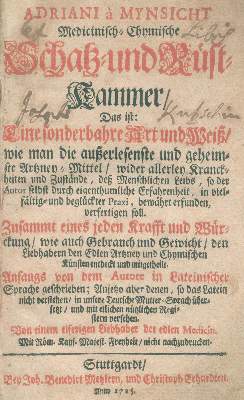 ADRIANI à MYNSICHT
Medicinisch-Chymische
Schatz-und Rüst-
Kammer/
Das ist:
Eine sonderbahre Art und Weiß/
wie man die außerlesenste und geheim-
ste Artzney-Mittel/ wider allerley Kranck-
heiten und Zustände, deß Menschlichen Leibs, so der
Autor selbst durch eigenthumliche Erfahrenheit, in viel-
fältig-und beglückter Praxi, bewährt erfunden,
verfertigen soll.
Zusammt eines jeden Krafft und Wür-
ckung/ wie auch Gebrauch und Gewicht/ den
Liebhabern der Edlen Artzney und Chymischen
Künsten entdeckt und mitgetheilt.
Anfangs von dem Autore in Lateinischer
Sprache geschrieben; Anjetzo aber denen, so das Latein
nicht verstehen/ in unsere Teutsche Mutter-Sprach über-
setzt/ und mit etlichen nützlichen Regi-
stern versehen.
Von einem eiferigen Liebhaber der edlen Medicin.
Mit Röm. Kays. Majest. Freyheit/ nicht nachzudrucken.
Stuttgardt/
Bey Joh. Benedict Metzlern, und Christoph Erhardten.
Anno 1725.